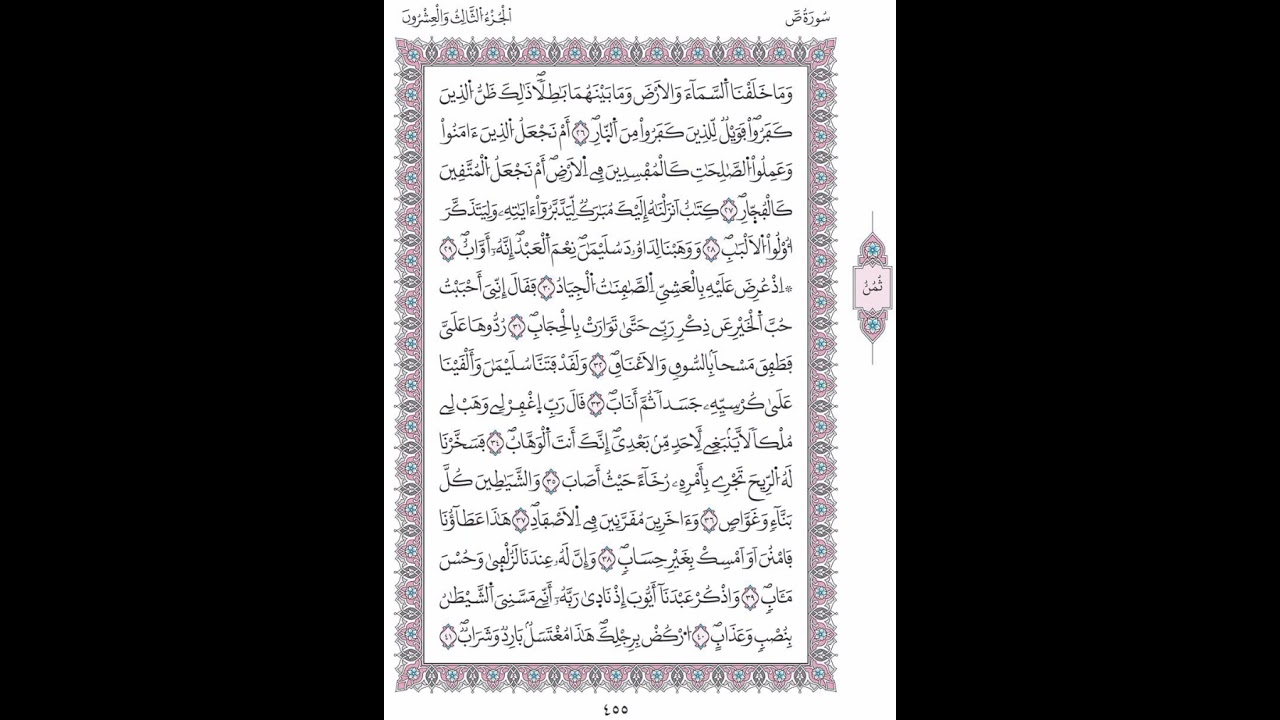 سُورَةُ صٓ
اَ۬لْجُزْءُ اُ۬لثَّالِثُ وَالْعِشْرُونَ
وَمَا خَلَقْنَا اَ۬لسَّمَآءَ وَالَارْضَ وَمَا بَيْنَهُمَا بَٰطِلاٗۖ ذَٰلِكَ ظَنُّ اُ۬لذِينَ
كَفَرُواْۖ فَوَيْلٞ لِّلذِينَ كَفَرُواْ مِنَ اَ۬لنّ۪ارِۖ ٢٦ أَمْ نَجْعَلُ اُ۬لذِينَ ءَامَنُواْ
وَعَمِلُواْ اُ۬لصَّٰلِحَٰتِ كَالْمُفْسِدِينَ فِے اِ۬لَارْضِۖ أَمْ نَجْعَلُ اُ۬لْمُتَّقِينَ
كَالْفُجّ۪ارِۖ ٢٧ كِتَٰبٌ اَنزَلْنَٰهُ إِلَيْكَ مُبَٰرَكٞ لِّيَدَّبَّرُوٓاْ ءَايَٰتِهِۦ وَلِيَتَذَكَّرَ
أُوْلُواْ اُ۬لَالْبَٰبِۖ ٢٨ وَوَهَبْنَا لِدَاوُۥدَ سُلَيْمَٰنَۖ نِعْمَ اَ۬لْعَبْدُۖ إِنَّهُۥٓ أَوَّابٌۖ ٢٩
۞ اِذْ عُرِضَ عَلَيْهِ بِالْعَشِيِّ اِ۬لصَّٰفِنَٰتُ اُ۬لْجِيَادُ ٣٠ فَقَالَ إِنِّيَ أَحْبَبْتُ
حُبَّ اَ۬لْخَيْرِ عَن ذِكْرِ رَبِّے حَتَّىٰ تَوَارَتْ بِالْحِجَابِۖ ٣١ رُدُّوهَا عَلَيَّ
فَطَفِقَ مَسْحاَۢ بِالسُّوقِ وَالَاعْنَاقِۖ ٣٢ وَلَقَدْ فَتَنَّا سُلَيْمَٰنَ وَأَلْقَيْنَا
عَلَىٰ كُرْسِيِّهِۦ جَسَداٗ ثُمَّ أَنَابَۖ ٣٣ قَالَ رَبِّ اِ۪غْفِرْ لِے وَهَبْ لِے
مُلْكاٗ لَّا يَنۢبَغِے لِأَحَدٖ مِّنۢ بَعْدِيَۖ إِنَّكَ أَنتَ اَ۬لْوَهَّابُۖ ٣٤ فَسَخَّرْنَا
لَهُ اُ۬لرِّيحَ تَجْرِے بِأَمْرِهِۦ رُخَآءً حَيْثُ أَصَابَ ٣٥ وَالشَّيَٰطِينَ كُلَّ
بَنَّآءٖ وَغَوَّاصٖ ٣٦ وَءَاخَرِينَ مُقَرَّنِينَ فِے اِ۬لَاصْفَادِۖ ٣٧ هَٰذَا عَطَآؤُنَا
فَامْنُنَ اَوَ اَمْسِكْ بِغَيْرِ حِسَابٖۖ ٣٨ وَإِنَّ لَهُۥ عِندَنَا لَزُلْف۪ىٰ وَحُسْنَ
مَـَٔابٖۖ ٣٩ وَاذْكُرْ عَبْدَنَآ أَيُّوبَ إِذْ نَاد۪ىٰ رَبَّهُۥٓ أَنِّے مَسَّنِيَ اَ۬لشَّيْطَٰنُ
بِنُصْبٖ وَعَذَابٍۖ ٤٠ اُ۟رْكُضْ بِرِجْلِكَۖ هَٰذَا مُغْتَسَلُۢ بَارِدٞ وَشَرَابٞۖ ٤١
ثُمُنُ
٤٥٥